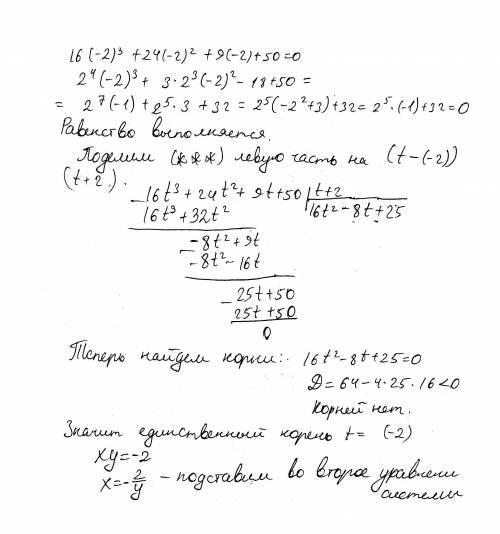 16(-2)³ + 24(-2)² + 9(-2)+50=0
2⁴(-2)³ + 3·2³(-2)² - 18+50 =
= 2⁷(-1) + 2⁵·3 + 32 = 2⁵(-2²+3)+32 = 2⁵·(-1)+32=0
Равенство выполняется.
Поделим (***) левую часть на (t-(-2))
(t+2).
-16t³+24t²+9t+50 | t+2
16t³+32t² 16t²-8t+25
-8t²+9t
-8t²-16t
-25t+50
25t+50
0
Теперь найдем корни: 16t²-8t+25=0
D=64-4·25·16<0
Корней нет.
Значит единственный корень t= (-2)
xy=-2
x=-2/y - подставим во второе уравнени
системы